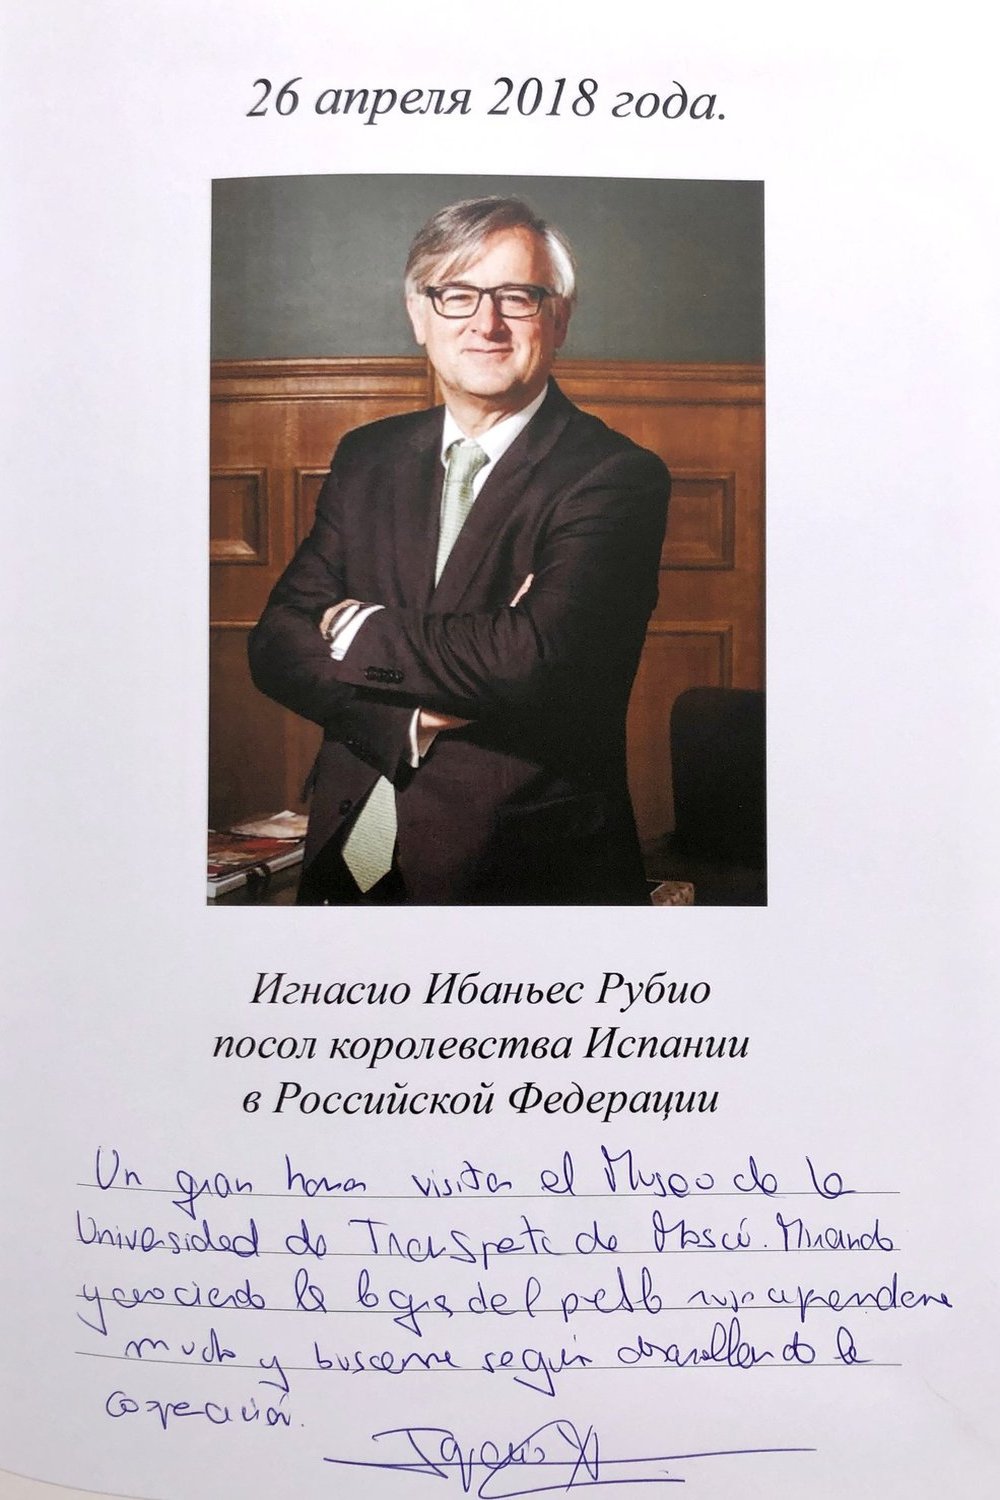 26 апреля 2018 года.
Игнасио Ибаньес Рубио
посол королевства Испании
в Российской Федерации
Un gran honor visitar el Museo de la
Universidad de Transporte de Moscú. Mirando
y conociendo los logros del pueblo ruso aprendemos
mucho y buscamos seguir desarrollando la
cooperación.